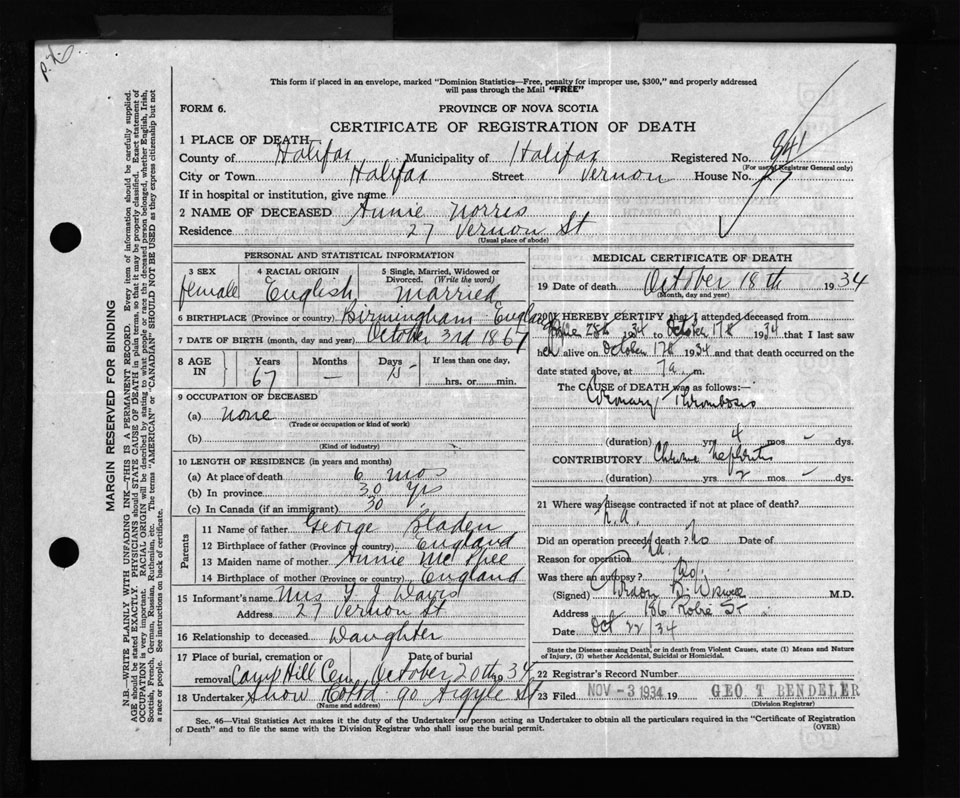 P.X.
This form if placed in an envelope, marked "Dominion Statistics—Free, penalty for improper use, $300," and properly addressed
will pass through the Mail "FREE"
FORM 6.
PROVINCE OF NOVA SCOTIA
CERTIFICATE OF REGISTRATION OF DEATH
1 PLACE OF DEATH
County of Halifax Municipality of Halifax Registered No. 841
(For use of Registrar General only)
City or Town Halifax Street Vernon House No. 27
If in hospital or institution, give name
2 NAME OF DECEASED Annie Norris
Residence 27 Vernon St
(Usual place of abode)
PERSONAL AND STATISTICAL INFORMATION
3 SEX female
4 RACIAL ORIGIN English
5 Single, Married, Widowed or Divorced. (Write the word) Married
6 BIRTHPLACE (Province or country) Birmingham England
7 DATE OF BIRTH (month, day and year) October 3rd 1867
8 AGE IN Years 67 Months — Days 15 If less than one day, ........hrs. or........min.
9 OCCUPATION OF DECEASED
(a) none
(Trade or occupation or kind of work)
(b)
(Kind of industry)
10 LENGTH OF RESIDENCE (in years and months)
(a) At place of death 6 mos
(b) In province 30 yrs
(c) In Canada (if an immigrant) 30
Parents
11 Name of father George Bladen
12 Birthplace of father (Province or country) England
13 Maiden name of mother Annie
14 Birthplace of mother (Province or country) England
15 Informant's name Mrs Davis
Address 27 Vernon St
16 Relationship to deceased Daughter
17 Place of burial, cremation or removal Camp Hill Cem Date of burial October 20th 1934
18 Undertaker Snow & Co Ltd 90 Argyle St
(Name and address)
MEDICAL CERTIFICATE OF DEATH
19 Date of death October 18th 1934
(Month, day and year)
20 I HEREBY CERTIFY that I attended deceased from
28th 1934 to October 17th 1934 that I last saw
her alive on October 17th 1934 and that death occurred on the
date stated above, at 7 a. m.
The CAUSE of DEATH was as follows:—
Coronary Thrombosis
(duration) yrs 4 mos – dys.
CONTRIBUTORY Chronic Nephritis
(duration) yrs 2 mos – dys.
21 Where was disease contracted if not at place of death?
n.a.
Did an operation precede death? No Date of
Reason for operation n.a.
Was there an autopsy? No.
(Signed) M.D.
Address 186 Robie St
Date Oct 22/34
State the Disease causing Death, or in death from Violent Causes, state (1) Means and Nature
of Injury, (2) whether Accidental, Suicidal or Homicidal.
22 Registrar's Record Number
23 Filed NOV -3 1934 19 GEO T BENDELER
(Division Registrar)
Sec. 46—Vital Statistics Act makes it the duty of the Undertaker or person acting as Undertaker to obtain all the particulars required in the "Certificate of Registration
of Death" and to file the same with the Division Registrar who shall issue the burial permit.
(OVER)
MARGIN RESERVED FOR BINDING
N.B.—WRITE PLAINLY WITH UNFADING INK—THIS IS A PERMANENT RECORD. Every item of information should be carefully supplied.
AGE should be stated EXACTLY. PHYSICIANS should STATE CAUSE OF DEATH in plain terms, so that it may be properly classified. Exact statement of
OCCUPATION is very important. RACIAL ORIGIN will be described by stating to what people or race the deceased person belonged, whether English, Irish,
Scottish, French, German, Russian, Ruthenian, etc. The terms "AMERICAN" or "CANADIAN" SHOULD NOT BE USED as they express citizenship but not
a race or people. See instructions on back of certificate.